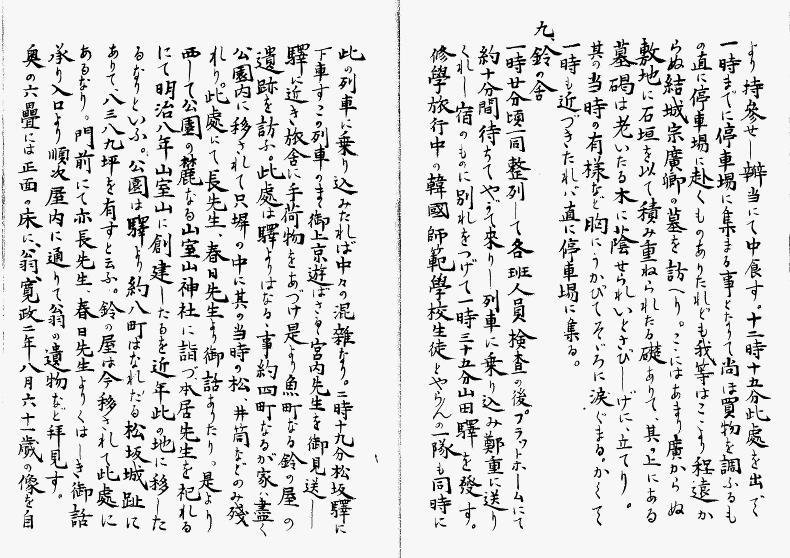 より持參せし辨当にて中食す。十二時十五分此處を出でて
一時までに停車場に集まる事となりて尚ほ買物を調ふるも
の直に停車場に赴くものありたれども我等はこゝより程遠か
らぬ結城宗廣卿の墓を訪へり。こゝはあまり廣からぬ
敷地に石垣を以て積み重ねられたる礎ありて、其上にある
墓碣は老いたる木に蔭せられいとさびしげに、立てり。
其の当時の有様など胸にうかびてそゞろに涙ぐまる。かくて
一時も近づきたれバ直に停車場に集る。
九、鈴の舎
一時廿分頃一同整列して各班人員檢査の後プラットホームにて
約十分間待ちてやがて來りし列車に乗り込み鄭重に送り
くれし宿のものに別れをつげて一時三十五分山田驛を發す。
修學旅行中の韓國師範學校生徒とやらんの一隊も同時に
此の列車に乗り込みたれば中々の混雜なり。二時十九分松坂驛に
下車すこの列車のまゝ御上京遊ばさるゝ宮内先生を御見送し
驛に近き旅舍に手荷物をあづけ是より魚町なる鈴の屋の
遺跡を訪ふ。此處は驛よりはなるゝ事約四町なるが家は盡く
公園内に移されて只塀の中に其の当時の松、井筒などのみ殘
れり。此處にて長先生、春日先生より御話ありたりっ是より
西して公園の麓なる山室山神社に詣づ本居先生を祀れる
にて明治八年山室山に創建したるを近年此の地に移した
るなりといふ。公園は驛より約八町はなれたる松坂城趾に
ありて、八三八九坪を有すと云ふ。鈴の屋は今移されて此處に
あるなり。門前にて亦長先生、春日先生よりくはしき御話
承り入口より順次屋内に通りて翁の遺物など拜見す。
奥の六疊には正面の床に、翁寛政二年八月六十一歳の像を自